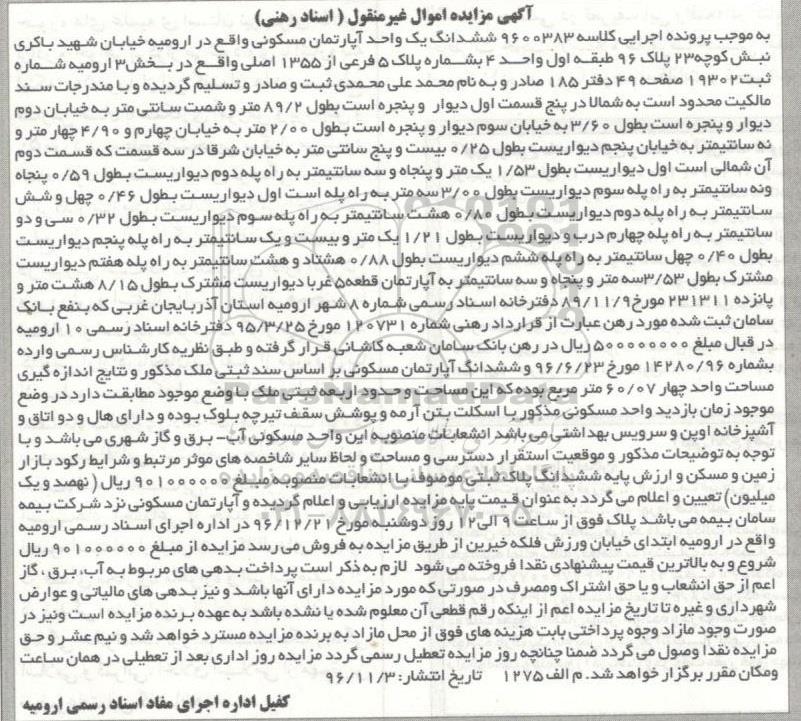 آگهی مزایده اموال غیرمنقول ( اسناد رهنی)
به موجب پرونده اجرایی کلاسه ۹۶۰۰۳۸۳ ششدانگ یک واحد آپارتمان مسکونی واقع در ارومیه خیابان شهید باکری
نبش کوچه۲۳ پلاک ۹۶ طبقه اول واحد ۴ بشماره پلاک ۵ فرعی از ۱۳۵۵ اصلی واقع در بخش۳ ارومیه شماره
ثبت۱۹۳۰۲ صفحه ۴۹ دفتر ۱۸۵ صادر و به نام محمد علی محمدی ثبت و صادر و تسلیم گردیده و با مندرجات سند
مالکیت محدود است به شمالا در پنج قسمت اول دیوار و پنجره است بطول ۸۹/۲ متر و شصت سانتی متر به خیابان دوم
دیوار و پنجره است بطول ۳/۶۰ به خیابان سوم دیوار و پنجره است بطول ۲/۰۰ متر به خیابان چهارم و ۴/۹۰ چهار متر و
نه سانتیمتر به خیابان پنجم دیواریست بطول ۰/۲۵ بیست و پنج سانتی متر به خیابان شرقا در سه قسمت که قسمت دوم
آن شمالی است اول دیواریست بطول ۱/۵۳ یک متر و پنجاه و سه سانتیمتر به راه پله دوم دیواریست بطول ۰/۵۹ پنجاه
ونه سانتیمتر به راه پله سوم دیواریست بطول ۳/۰۰ سه متر به راه پله است اول دیواریست بطول ۰/۴۶ چهل و شش
سانتیمتر به راه پله دوم دیواریست بطول ۰/۸۰ هشت سانتیمتر به راه پله سوم دیواریست بطول ۰/۳۲ سی و دو
سانتیمتر به راه پله چهارم درب و دیواریست بطول ۱/۲۱ یک متر و بیست و یک سانتیمتر به راه پله پنجم دیواریست
بطول ۰/۴۰ چهل سانتیمتر به راه پله ششم دیواریست بطول ۰/۸۸ هشتاد و هشت سانتیمتر به راه پله هفتم دیواریست
مشترک بطول ۳/۵۳سه متر و پنجاه و سه سانتیمتر به آپارتمان قطعه۵ غربا دیواریست مشترک بطول ۸/۱۵ هشت متر و
پانزده ۲۳۱۳۱۱ مورخ۸۹/۱۱/۹ دفترخانه اسناد رسمی شماره ۸ شهر ارومیه استان آذربایجان غربی که بنفع بانک
سامان ثبت شده مورد رهن عبارت از قرارداد رهنی شماره ۱۲۰۷۳۱ مورخ ۹۵/۳/۲۵ دفترخانه اسناد رسمی ۱۰ ارومیه
در قبال مبلغ ۵۰۰۰۰۰۰۰۰ ریال در رهن بانک سامان شعبه کاشانی قرار گرفته و طبق نظریه کارشناس رسمی وارده
بشماره ۱۴۲۸۰/۹۶ مورخ ۹۶/۶/۲۳ و ششدانگ آپارتمان مسکونی بر اساس سند ثبتی ملک مذکور و نتایج اندازه گیری
مساحت واحد چهار ۶۰/۰۷ متر مربع بوده که این مساحت و حدود اربعه ثبتی ملک با وضع موجود مطابقت دارد در وضع
موجود زمان بازدید واحد مسکونی مذکور با اسکلت بتن آرمه و پوشش سقف تیرچه بلوک بوده و دارای هال و دو اتاق و
آشپزخانه اوپن و سرویس بهداشتی می باشد انشعابات منصوبه این واحد مسکونی آب- برق و گاز شهری می باشد و با
توجه به توضیحات مذکور و موقعیت استقرار دسترسی و مساحت و لحاظ سایر شاخصه های موثر مرتبط و شرایط رکود بازار
زمین و مسکن و ارزش پایه ششدانگ پلاک ثبتی موصوف با انشعابات منصوبه مبلغ ۹۰۱۰۰۰۰۰۰ ریال ( نهصد و یک
میلیون) تعیین و اعلام می گردد به عنوان قیمت پایه مزایده ارزیابی و اعلام گردیده و آپارتمان مسکونی نزد شرکت بیمه
سامان بیمه می باشد پلاک فوق از ساعت ۹ الی۱۲ روز دوشنبه مورخ ۹۶/۱۲/۲۱ در اداره اجرای اسناد رسمی ارومیه
واقع در ارومیه ابتدای خیابان ورزش فلکه خیرین از طریق مزایده به فروش می رسد مزایده از مبلغ ۹۰۱۰۰۰۰۰۰ ریال
شروع و به بالاترین قیمت پیشنهادی نقدا فروخته می شود لازم به ذکر است پرداخت بدهی های مربوط به آب، برق ، گاز
اعم از حق انشعاب و یا حق اشتراک ومصرف در صورتی که مورد مزایده دارای آنها باشد و نیز بدهی های مالیاتی و عوارض
شهرداری و غیره تا تاریخ مزایده اعم از اینکه رقم قطعی آن معلوم شده یا نشده باشد به عهده برنده مزایده است ونیز در
صورت وجود مازاد وجوه پرداختی بابت هزینه های فوق از محل مازاد به برنده مزایده مسترد خواهد شد و نیم عشر و حق
مزایده نقدا وصول می گردد ضمنا چنانچه روز مزایده تعطیل رسمی گردد مزایده روز اداری بعد از تعطیلی در همان ساعت
ومکان مقرر برگزار خواهد شد. م الف ۱۲۷۵ تاریخ انتشار: ۹۶/۱۱/۳
کفیل اداره اجرای مفاد اسناد رسمی ارومیه